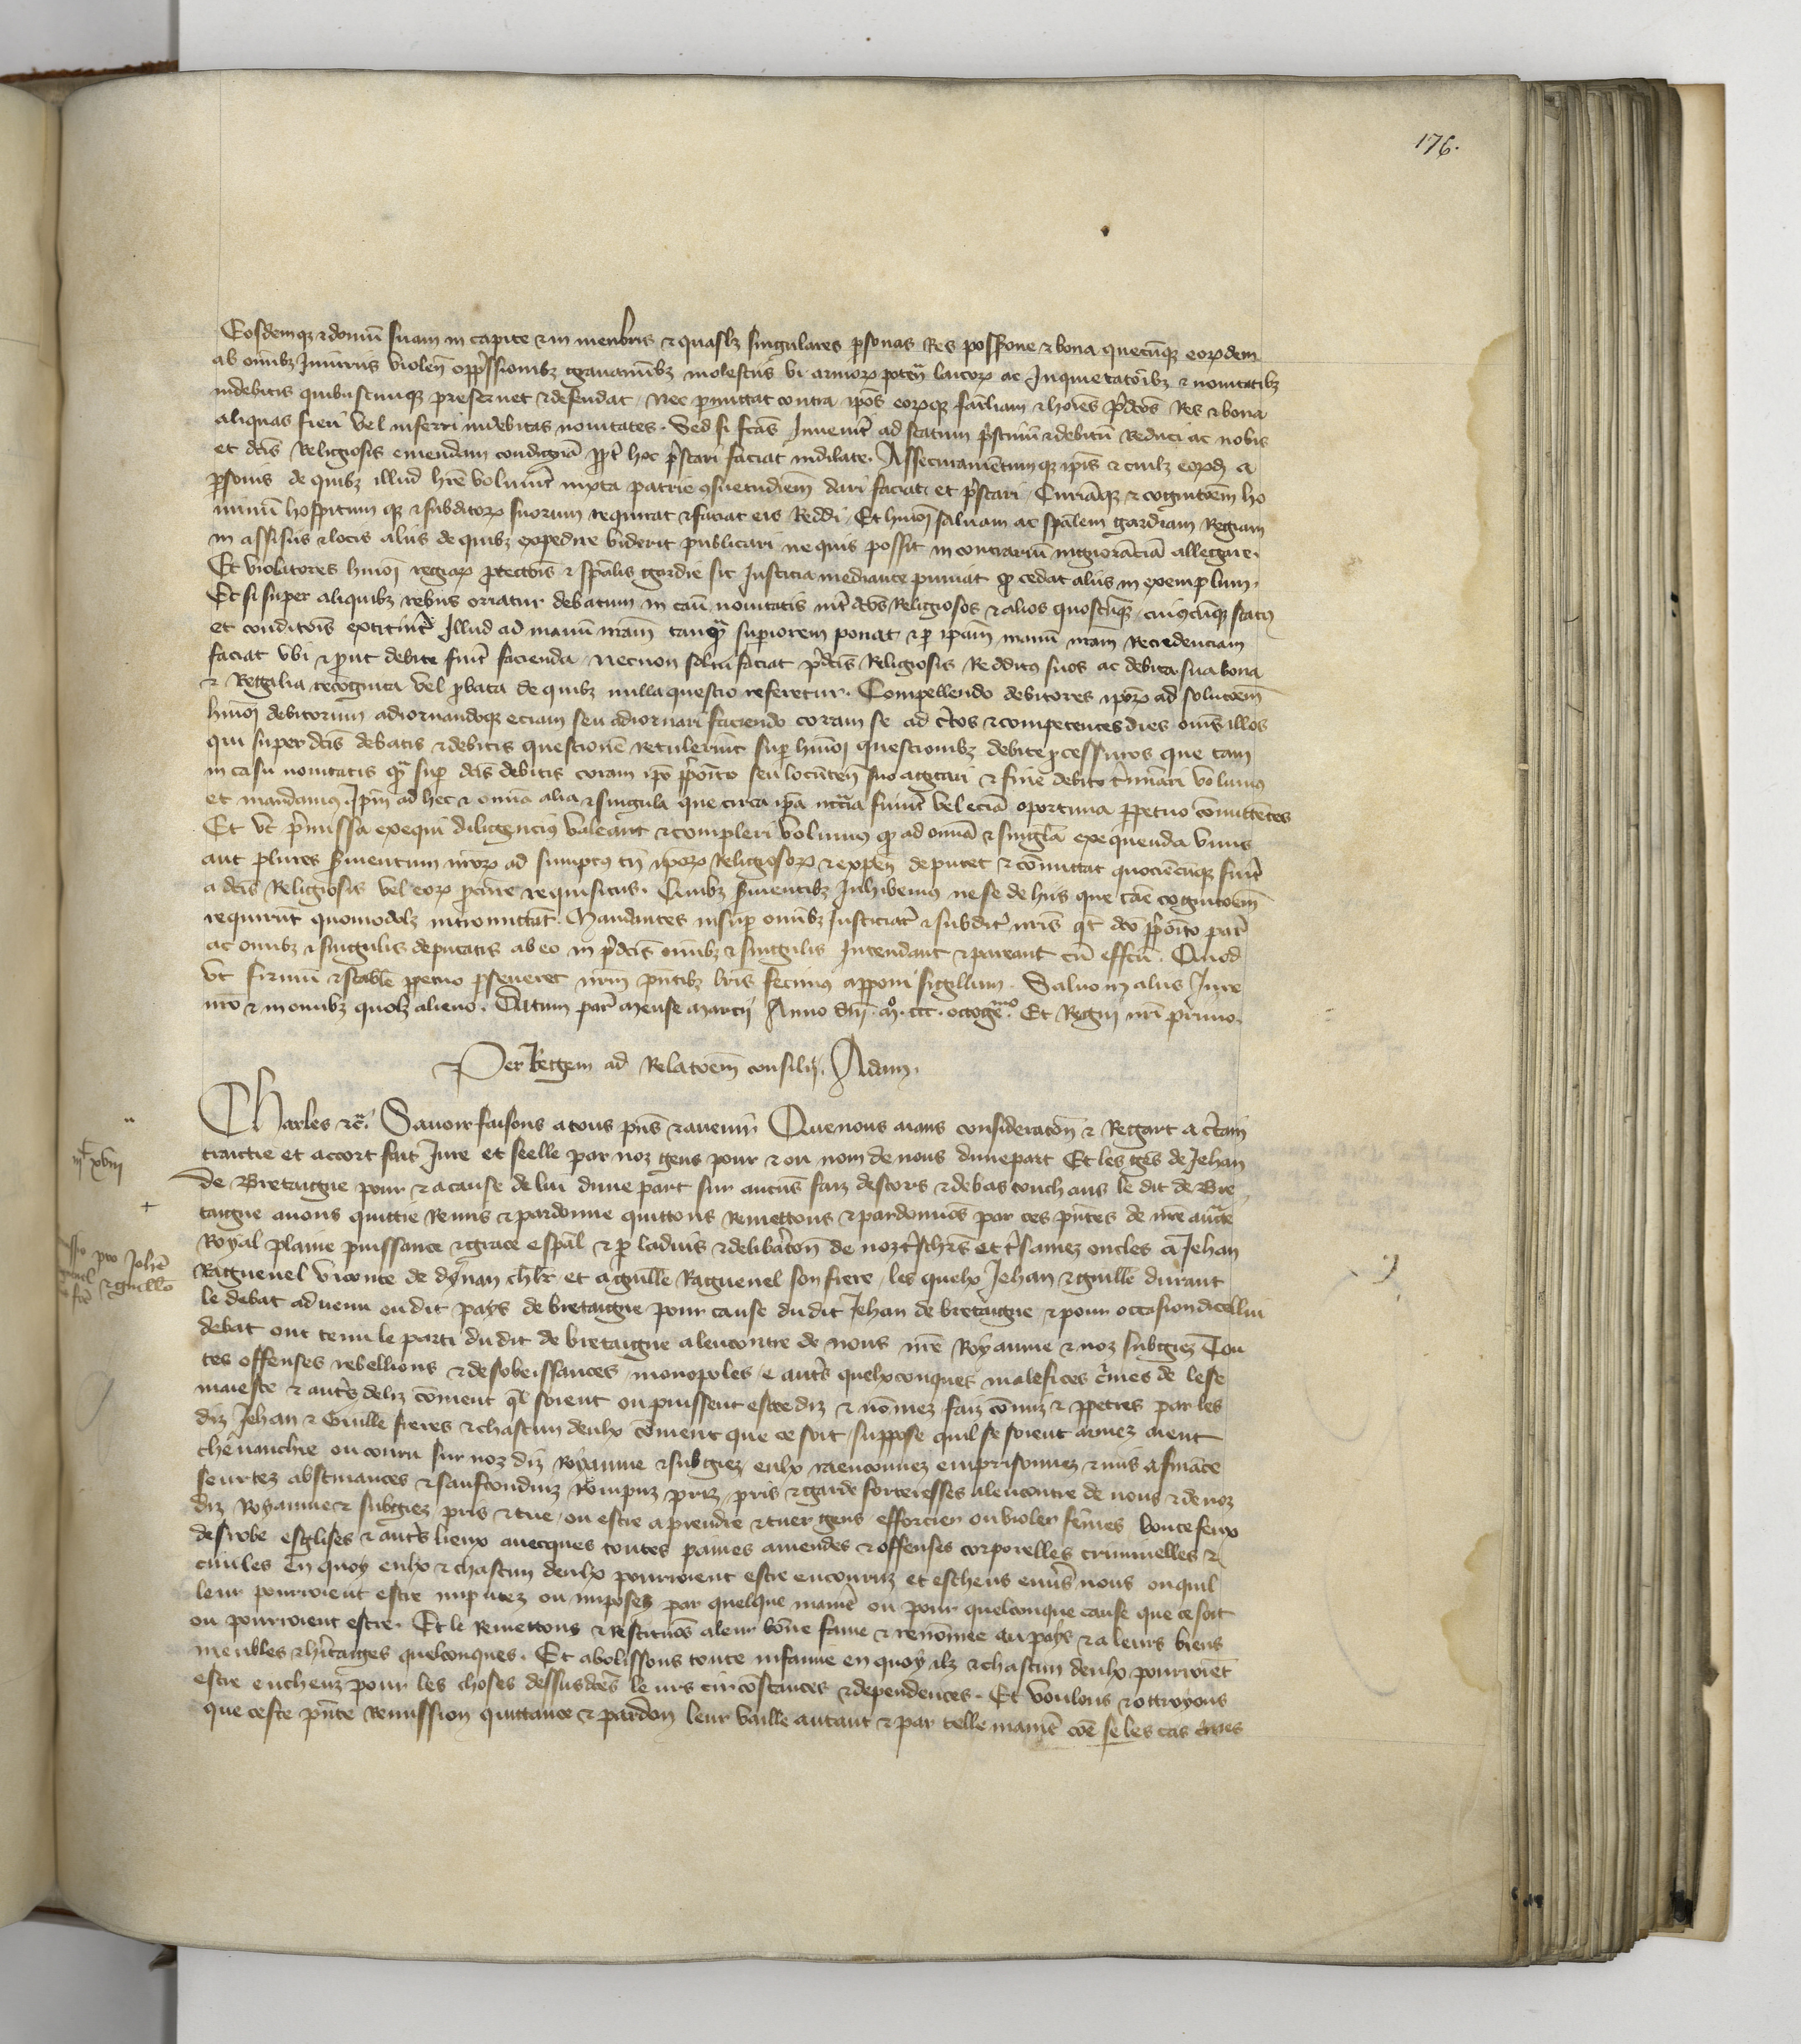 176.
Eosdemqz & domū suam in capite & in menbris & quaslz singulares psonas Res possone & bona quecūqz eordem
ab omībz Iniuriis violen̄ opp̄ssionibz grauaminibz molestiis vi armor poten̄ laicor ac Inquietatōibz & nouitatibz
indebitis quibuscunqz preseruet & defendat. Nec pmittat contra ipōs eorqz familiam & hoīes p̄dcōs Res & bona
aliquas fieri vel inferri indebitas nouitates. Sed si fcās Inuenit̄ ad statum p̄stinū & debitū Reduci ac nobis
et dcīs Religiosis emendam condignā ppt̄ hoc p̄stari faciat indilate. Assecuramentumqz ipīs & cuilz eord a
psonis de quibz illud hr̄e volunt̄ iuxta patrie ɔsuetudiēm dari faciat et p̄stari. Curiāqz & cognitōem ho
minū hospitum qz & subditor suorum requirat & faciat eis Reddi. Et hmōi saluam ac spālem gardiam Regiam
in assisiis & locis aliis de quibz expedire viderit publicari ne quis possit in contrariū ingnorāciā allegare.
Et violatores hmōi regiar ptectōis & spālis gardie sic Iusticia mediante puniat qd cedat aliis in exemplum.
Et si super aliquibz rebus oriatur debatum in casu nouitatis int̄ dcōs Religiosos & alios quoscūqz cuiuscūqz status
et conditōis extitint̄ Illud ad manū nr̄am tanqua superiorem ponat & p ipām manū nr̄am Recredenciam
faciat vbi & put debite fuit̄ facienda. Necnon solui faciat p̄dcīs Religiosis Redditus suos ac debita sua bona
& Regalia recognita vel pbata de quibz nulla questio referetur. Compellendo debitores ipor ad solutōem
hmōi debitorum adiornandoqz eciam seu adiornari faciendo coram se ad c̄tos & competentes dies oms̄ illos
qui super dcīs debatis & debitis questionē retulerint̄ sup hmōi questionibz debite pcessuros que tam
in casu nouitatis qua sup dcīs debitis coram ipō p̄pōito seu locūten̄ suo agitari & fine debito t̄minari volumus
et mandamus Ipm̄ ad hec & omīa alia & singula que circa ipā necc̄ia fuint̄ vel eciā oportuna ppetuo cōmittētes
Et vt p̄missa exequi diligencius valeant & compleri volumus qd ad omīa & singlā exequenda vnus
aut plures suientum nr̄or ad sumptus tn̄ ipor Religiosor & expen̄ deputet & cōmittat quociēcūqz fuit̄
a dcīs Religiosis vel eor pcure requisitus. Quibz suientibz Inhibemus ne se de hiis que cāe cognitōem
requirūt quomodolz intromittat. Mandantes insup omībz Iusticiar̄ & subdit̄ nr̄is qt̄ dcō p̄pōito par̄
ac omībz & singulis deputatis ab eo in p̄dcīs omībz & singulis Intendant & pareant cū effcū. Quod
vt firmū & stable ppetuo pseueret nr̄m pn̄tibz lr̄is fecimus apponi sigillum. Saluo in aliis Iure
nr̄o & in omībz quolz alieno. Datum par̄ mense marcij Anno dn̄i mº. ccc. octogeᵐº. Et Regni nr̄i primo.
Per Regem ad Relatōem consilij. Adam.
CHarles &c̄. Sauoir faisons a tous pn̄s & auenir Que nous aians consideratōn & Regart a c̄tain
traictie et accort fait Iure et seelle par noz gens pour & ou nom de nous dunepart Et les gēs de Jehan
de Bretaigne pour & a cause de lui dune part sur aucūs faiz descors & debas touchans le dit de Bre
taigne auons quittie Remis & pardonne quittons Remettons & pardonnōs par ces pn̄tes de nr̄e auct̄e
Royal plaine puissance & grace espāl & p ladvis & delibār̄ton̄ de noz t̄schr̄s et t̄samez oncles a Jehan
Raguenel viconte de dynan ch̄lr et a guille Raguenel son frere, les quelx Jehan & guille durant
le debat aduenu ou dit pays de bretaigne pour cause du dit Jehan de bretaigne & pour occasion dicellui
debat ont tenu le parti du dit de bretaigne alencontre de nous nr̄e Royaume & noz subgiez Tou
tes offenses rebellions & desobeissances monopoles & aut̄s quelxconques malefices c̄mes de lese
maieste & aut̄s deliz cōment ql̄ soient ou puissent estre diz & nōmez faiz cōmiz & ppetres par les
diz Jehan & Guille freres & chascun deulx cōment que ce soit suppose quil se soient armez aient
cheuauchie ou couru sur noz diz Royaume & subgiez eulx raenconnez emprisonnez & mis a fināce
seurtez abstinances & saufconduiz Rompuz priz, pris & garde forteresses alencontre de nous & de noz
diz Royaume & subgiez pris & tue, ou estre a prendre & tuer gens efforcier ou violer fēmes boute feux
desrobe esglises & aut̄s lieux auecques toutes paines amendes & offenses corporelles criminelles &
ciuiles en quoy eulx & chascun deulx pourroient estre encouruz et escheus enu̓s nous ou quil
leur pourroient estre imputez ou imposez par quelque manie̓ ou pour quelconque cause que ce soit
ou pourroient estre. Et le Remettons & restituōs a leur bōne fame & renōmee au pays & a leurs biens
meubles & hit̄aiges quelconques. Et abolissons toute infamie en quoy ilz & chascun deulx pourroiēt
estre encheuz pour les choses dessusdc̄es leurs circōstances & dependences. Et voulons & ottroyons
que ceste pn̄te Remission quittance & pardon leur vaille autant & par telle manie̓ cōe se les cas c̄mes
iijᶜ xviij
+
pro Johē
& guillō